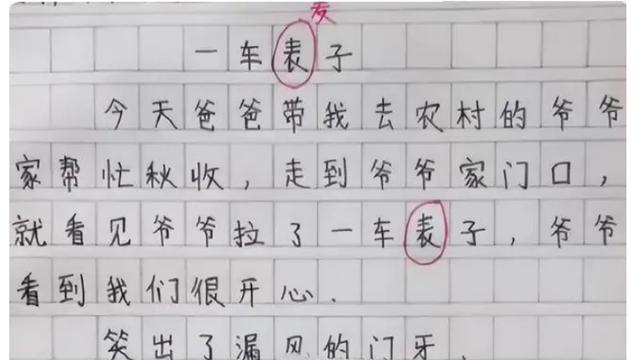 一车表子
今天爸爸带我去农村的爷爷
家帮忙秋收,走到爷爷家门口,
就看见爷爷拉了一车表子,爷爷
看到我们很开心.
笑出了漏风的门牙,